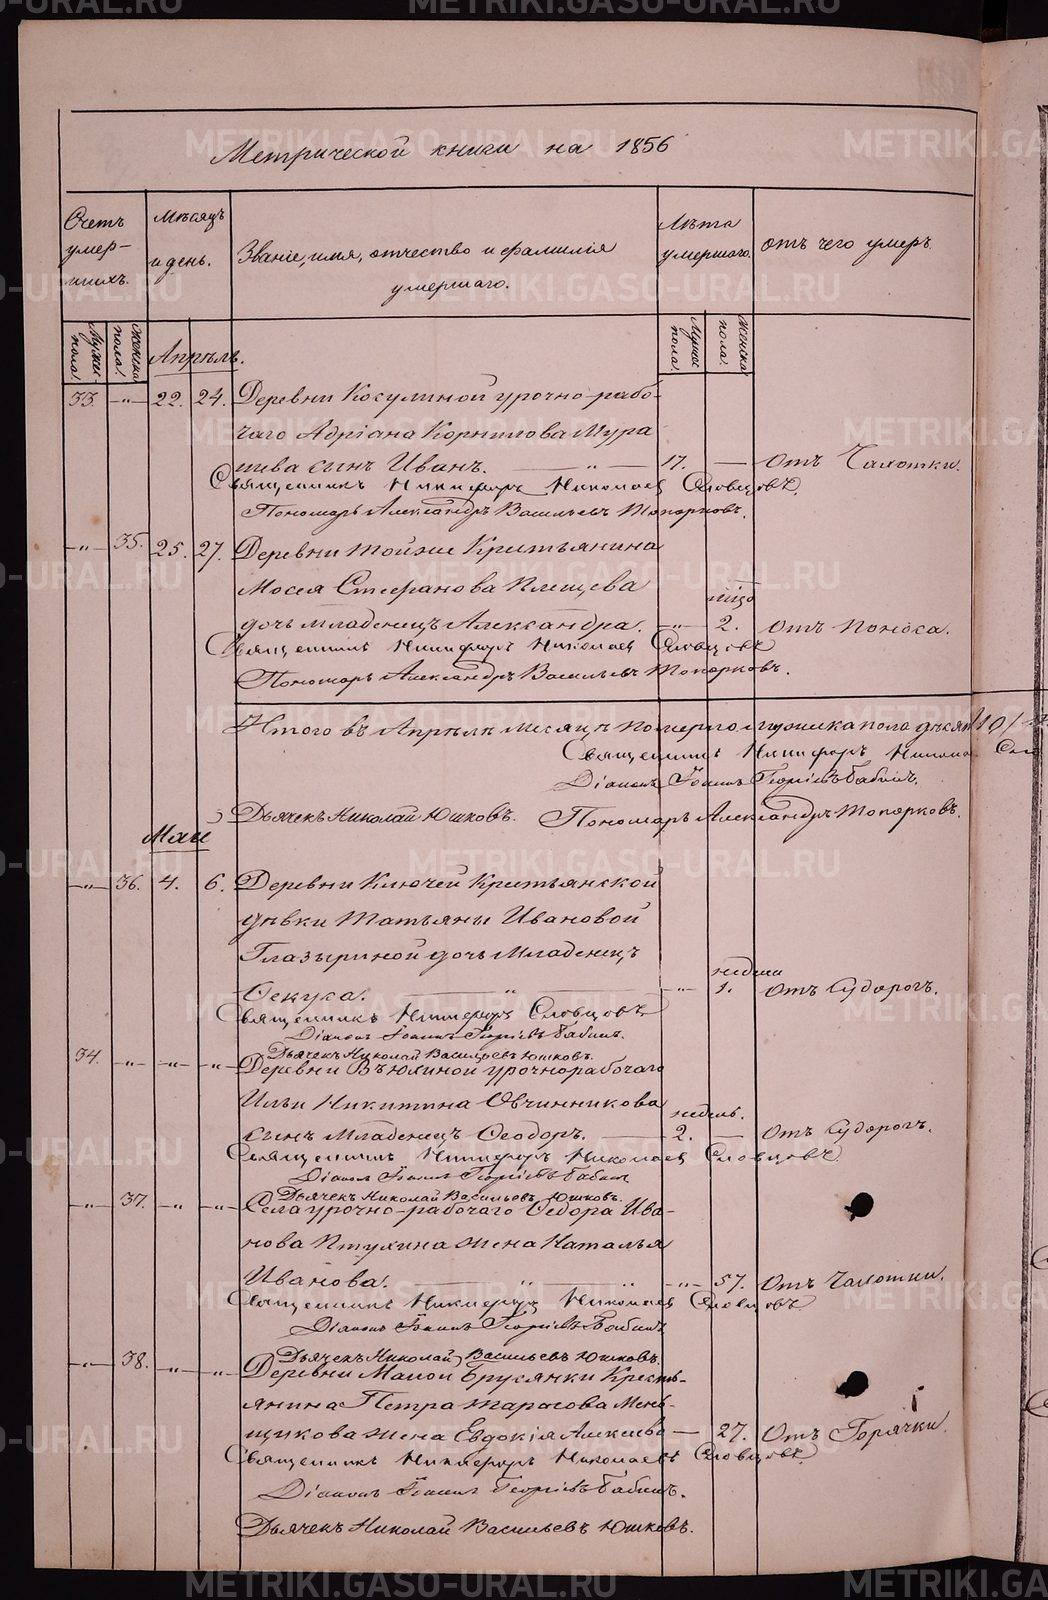 Метрической книги на 1856
Счетъ умер-шихъ.
Мѣсяцъ и день.
Званіе, имя, отчество и фамилія умершаго.
Лѣта умершаго.
отъ чего умеръ.
Мужес. пола.
Женска пола.
Мужес пола.
Женска пола.
Апрѣль.
33. —„— 22. 24. Деревни Косулиной урочно-рабо-
чаго Адріана Корнилова Мура
шева сынъ Иванъ. —„— 17. — Отъ Чахотки.
Священникъ Никифоръ Николаев Словцовъ.
Пономарь Александръ Васильевъ Топорковъ.
—„— 35. 25. 27. Деревни тойже Крестьянина
Мосея Стефанова Плещева
дочь младенецъ Александра. —„— 2. Отъ поноса.
Священникъ Никифоръ Николаев Словцовъ
Пономарь Александръ Васильевъ Топорковъ.
Итого въ Апрѣлѣ месяцѣ померло мужска пола десять 10/
Священникъ Никифоръ Николае
Діаконъ Іоаннъ Георгіевъ Бабинъ.
Дьячекъ Николай Юшковъ. Пономарь Александръ Топорковъ.
Маи
—„— 36. 4. 6. Деревни Ключей Крестьянской
дѣвки Татьяны Ивановой
Глазыриной дочь Младенец
неделя
Фекула. —„— —„— 1. Отъ Судорогъ.
Священникъ Никифоръ Словцовъ
Діаконъ Іоаннъ Георгіевъ Бабинъ.
Дьячекъ Николай Васильевъ Юшковъ.
34. —„— —„— —„— Деревни Вьюхиной урочнорабочаго
Ильи Никитина Овчинникова
недель.
сынъ Младенецъ Феодоръ. — 2. — Отъ Судорогъ.
Священникъ Никифоръ Николаев Словцовъ
Діаконъ Іоаннъ Георгіевъ Бабинъ
Дьячекъ Николай Васильевъ Юшковъ.
—„— 37. —„— —„— Села урочно-рабочаго Федора Ива-
нова Птухина жена Наталья
Иванова. —„— „ —„— 57. Отъ Чахотки.
Священникъ Никифоръ Николаев Словцовъ
Діаконъ Іоаннъ Георгіевъ Бабинъ
Дьячекъ Николай Васильевъ Юшковъ.
—„— 38. —„— —„— Деревни Малой Брусянки Кресть-
янина Петра Тарасова Мень-
щикова жена Евдокія Алексева — 27. Отъ Горячки.
Священникъ Никифоръ Николаевъ Словцовъ
Діаконъ Іоаннъ Георгіевъ Бабинъ.
Дьячекъ Николай Васильевъ Юшковъ.
METRIKI.GASO-URAL.RU